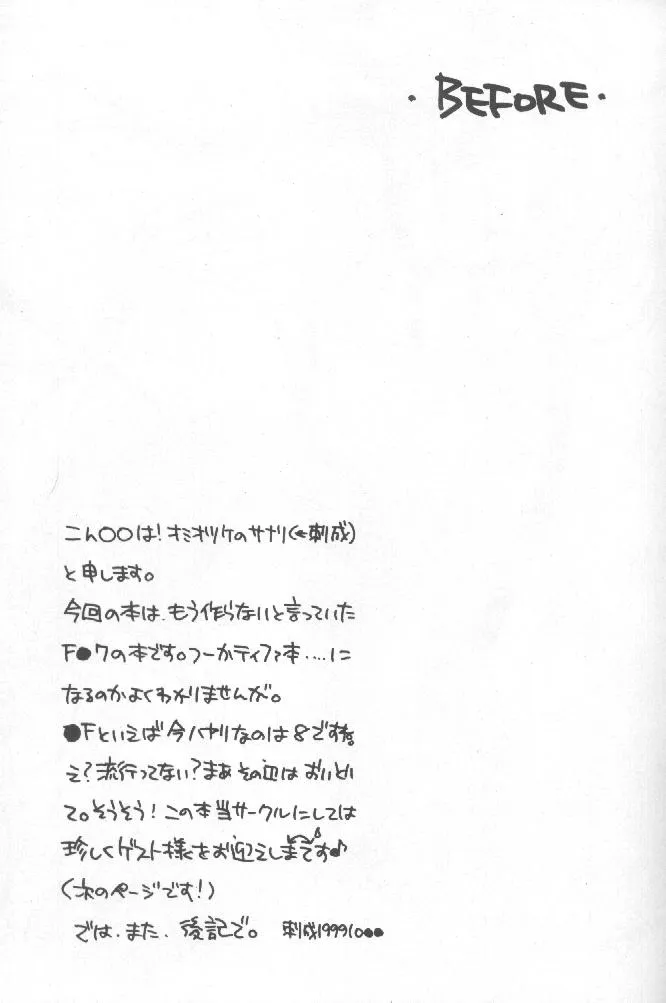 ・BEFORE・
こん〇〇は!オミオツケのサナリ(←刺成)
と申します。
今回の本は、もう作らないと言っていた
F●7の本です。つーかティファ本‥‥に
なるのかよくわかりませんが。
●Fといえば今ハヤリなのは8ですね。
え?流行ってない?まあその辺はおいとい
て。そうそう!この本当サークルにしては
珍しくゲスト様をお迎えしまです♪
(次のページです!)
では、また、後記で。 刺成199910●●